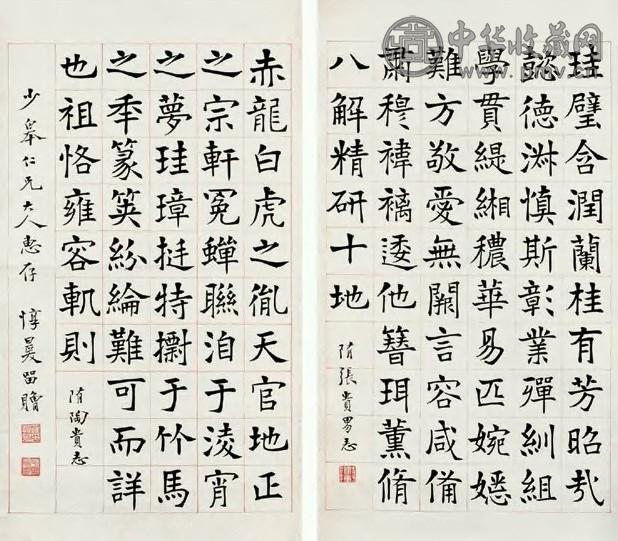 中华收藏网
珪璧含潤蘭桂有芳昭哉
懿德淑慎斯彰業殫紃組
學貫緹緗穠華易匹婉嫕
難方敬愛無闕言容咸備
肅穆褘褵逶他簪珥薰脩
八解精研十地
隋張貴男志
赤龍白虎之胤天官地正
之宗軒冕蟬聯洎于淩宵
之夢珪璋挺特于竹馬
之秊篆筴紛綸難可而詳
也祖恪雍容軌則
隋陶貴志
少皋仁兄大人惠存 惇昊留贈